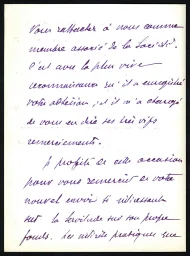 vous rattacher à nous comme
membre associé de la Société.
C'est avec la plus vive
reconnaissance qu'il a enregistré
votre adhésion, et il m'a chargé
de vous en dire ses très vifs
remerciements.
Je profite de cette occasion
pour vous remercier de votre
nouvel envoi si intéressant
sur la Servitude sur son propre
fonds. Les utilités pratiques me